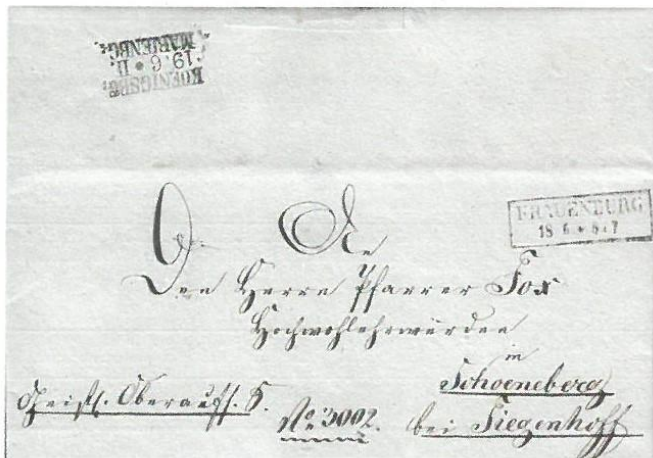 KOENIGSBG.
19 6 * II.
MARIENBG.
FRAUENBURG
18 6 * 8-7
An
Den Herrn Pfarrer Fox
Hochwohlehrwürden
in
Schoeneberg
bei Tiegenhoff
Geistl. Oberaufs. S.
No. 3002.